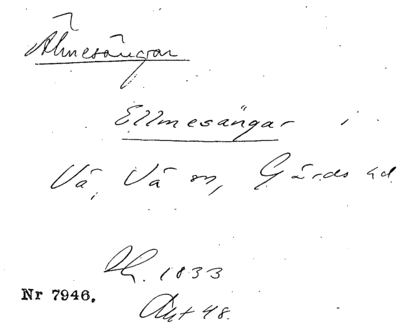 Älmesängar
Ellmesängar i
Vä, Vä sn, Gärds hd
Lh. 1833
Nr 7946.
Akt 48.